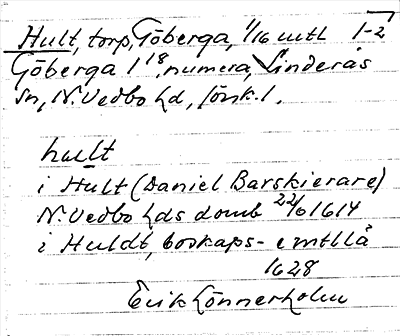 Hult, torp, Göberga, 1/16 mtl 1-2
Göberga 1¹⁸, numera, Linderås
sn, N. Vedbo hd, Jönk. l.
hult
i Hult (Daniel Barskierare)
N. Vedbo hds domb 22/6 1614
i Huldt, boskaps- o mtllä
1628
Erik Lönnerholm